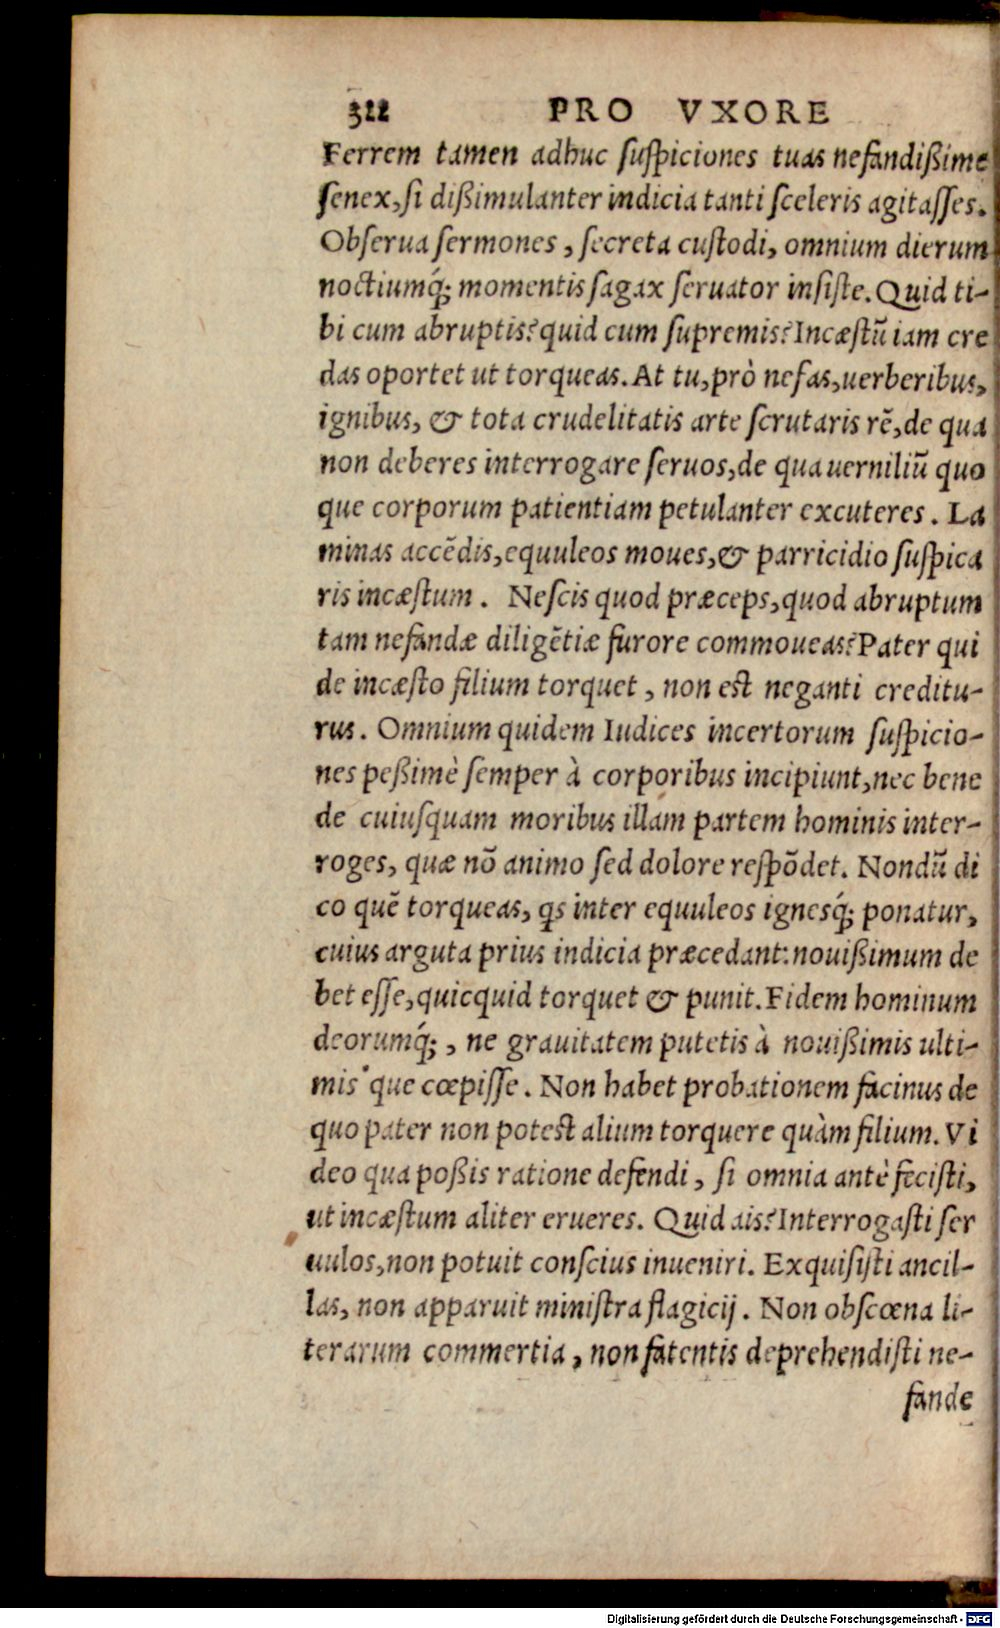 322 PRO VXORE
Ferrem tamen adhuc ſuſpiciones tuas nefandißime
ſenex,ſi dißimulanter indicia tanti ſceleris agitaſſes.
Obſerua ſermones , ſecreta cuſtodi, omnium dierum
noctiumq́; momentis ſagax ſeruator inſiſte. Quid ti-
bi cum abruptis? quid cum ſupremis? Incæſtũ iam cre
das oportet ut torqueas. At tu,prò nefas,uerberibus,
ignibus, & tota crudelitatis arte ſcrutaris rẽ,de qua
non deberes interrogare ſeruos,de qua uerniliũ quo
que corporum patientiam petulanter excuteres . La
minas accẽdis,equuleos moues,& parricidio ſuſpica
ris incæſtum . Neſcis quod præceps,quod abruptum
tam nefandæ diligẽtiæ furore commoueas? Pater qui
de incæſto filium torquet , non eſt neganti creditu-
rus . Omnium quidem Iudices incertorum ſuſpicio-
nes peßimè ſemper à corporibus incipiunt,nec bene
de cuiuſquam moribus illam partem hominis inter-
roges, quæ nõ animo ſed dolore reſpõdet. Nondũ di
co quẽ torqueas, qs inter equuleos ignesq́; ponatur,
cuius arguta prius indicia præcedant: nouißimum de
bet eſſe,quicquid torquet & punit. Fidem hominum
deorumq́; , ne grauitatem putetis à nouißimis ulti-
mis que cœpiſſe . Non habet probationem facinus de
quo pater non poteſt alium torquere quàm filium. Vi
deo qua poßis ratione defendi , ſi omnia antè feciſti,
ut incæſtum aliter erueres. Quid ais? Interrogaſti ſer
uulos,non potuit conſcius inueniri. Exquiſiſti ancil-
las, non apparuit miniſtra flagicij . Non obſcœna li-
terarum commertia , non fatentis deprehendiſti ne-
fande
Digitalisierung gefördert durch die Deutsche Forschungsgemeinschaft - DFG